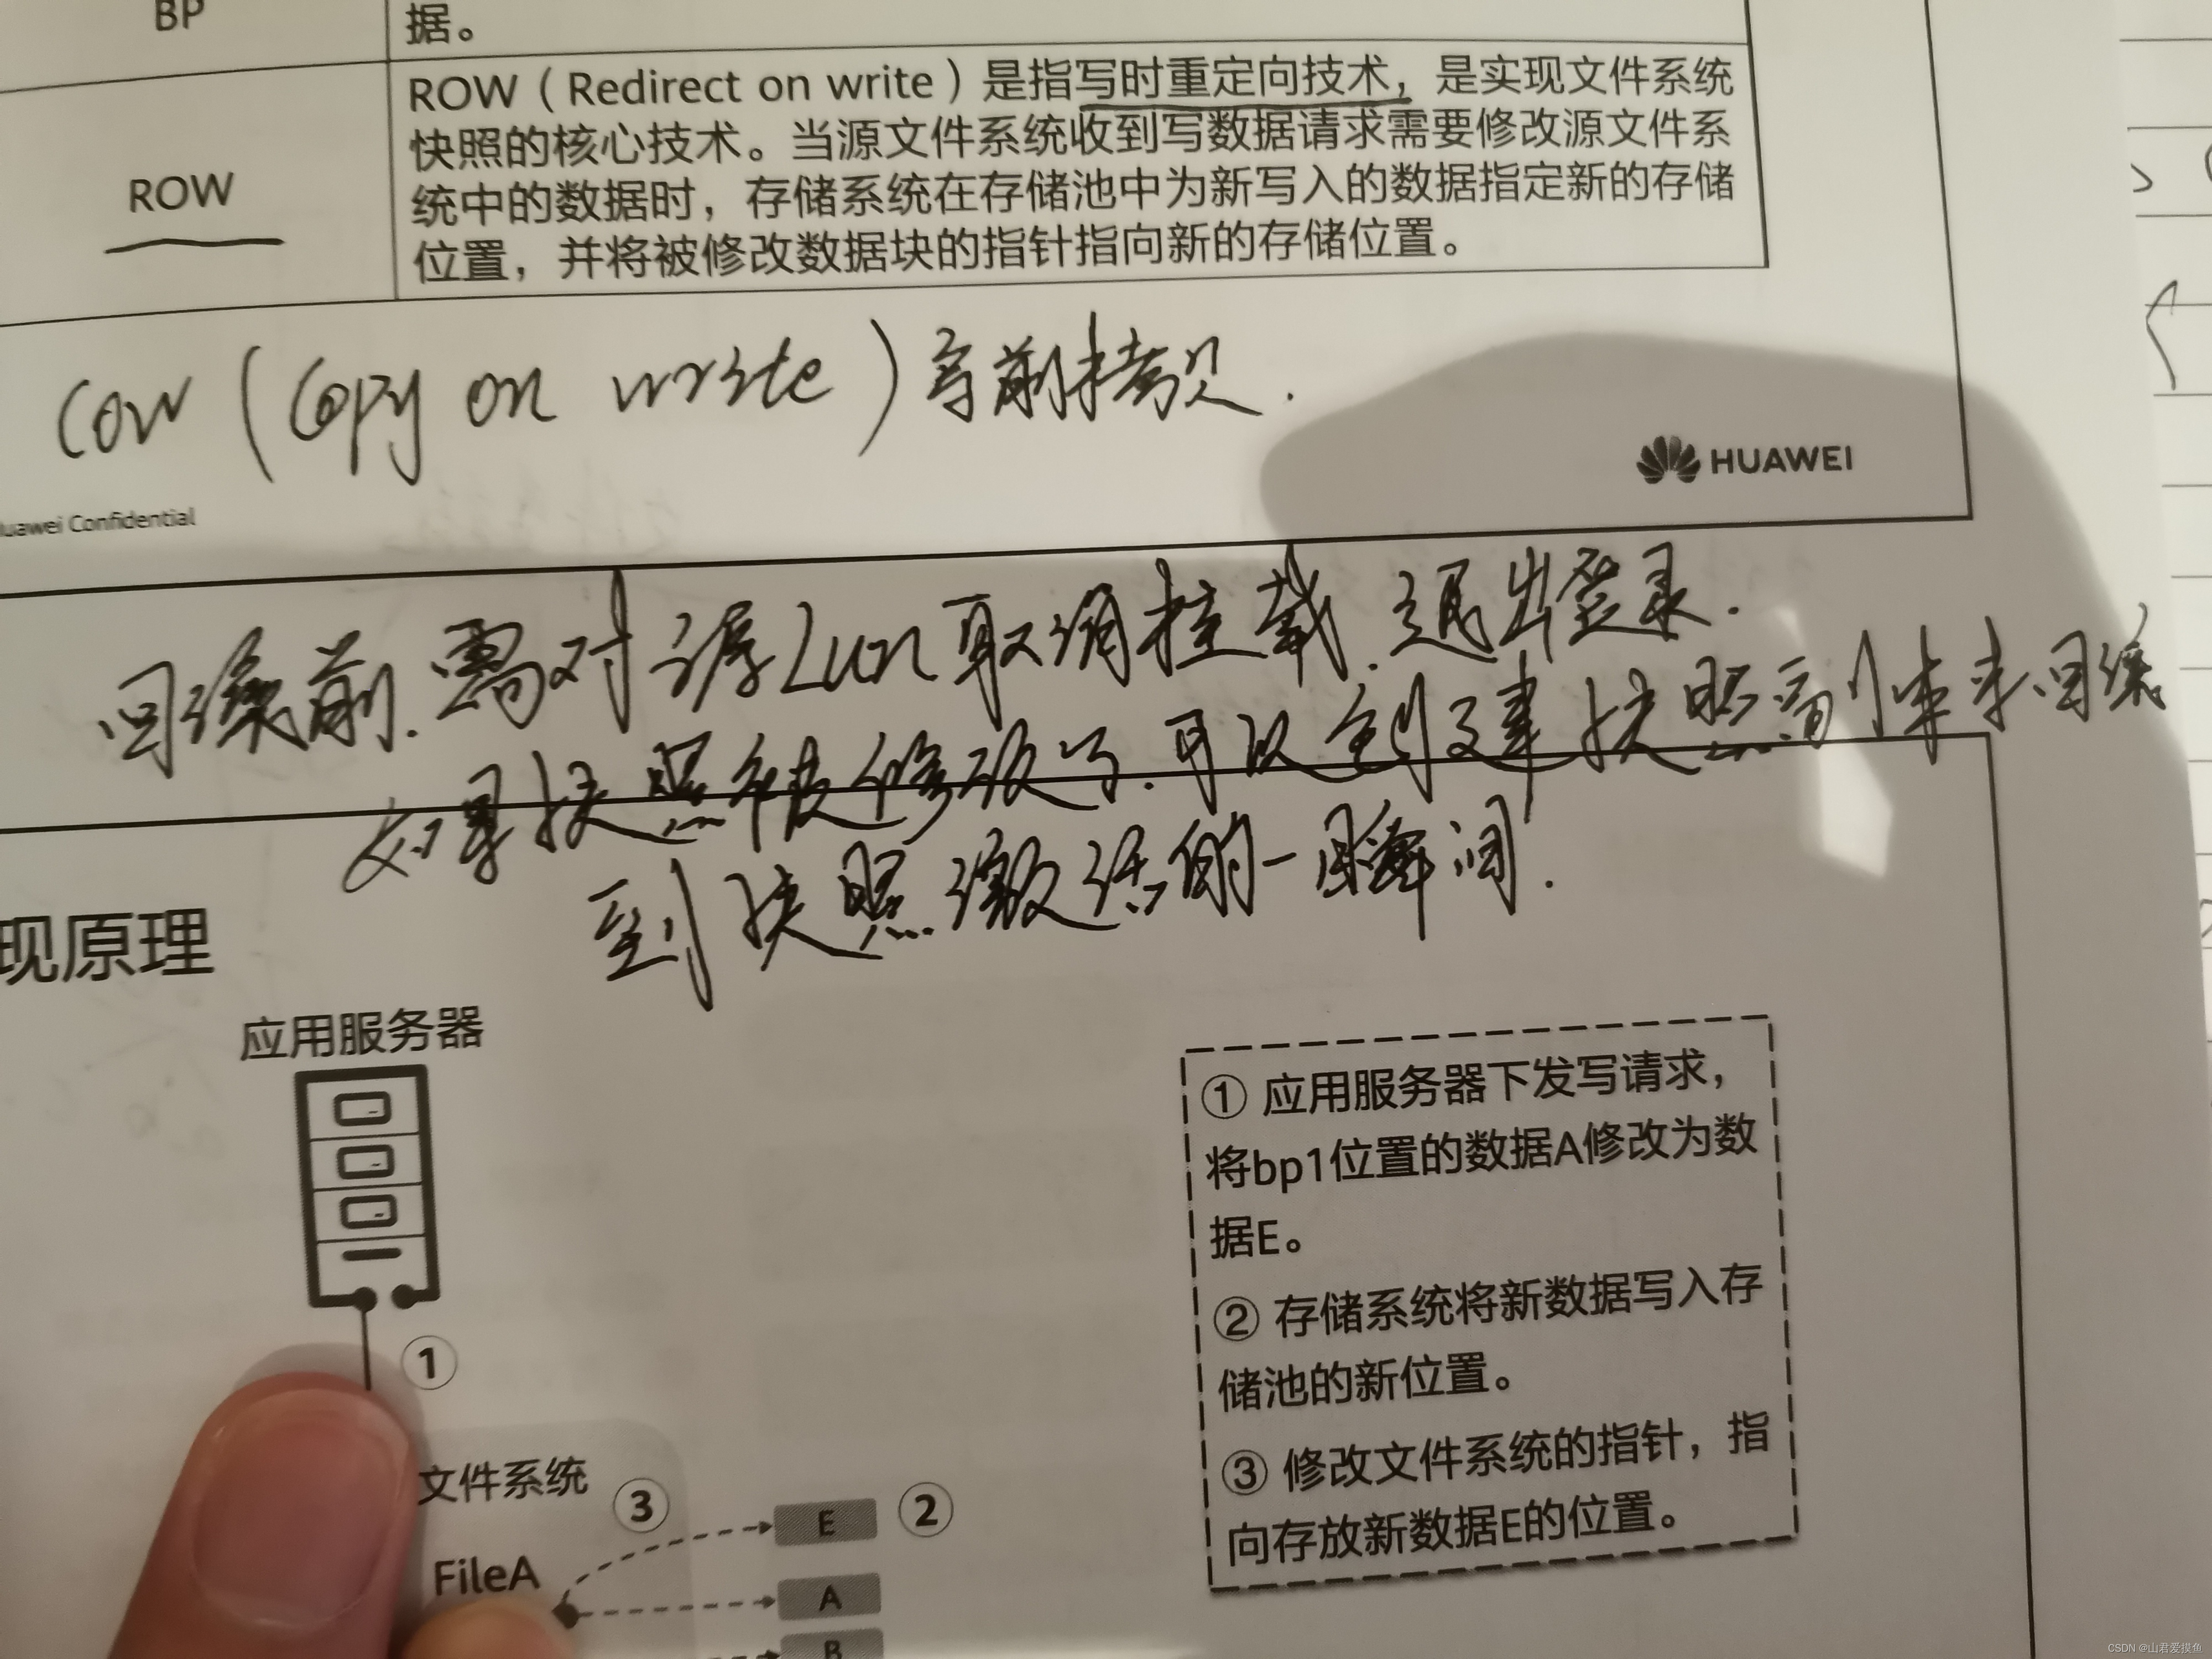 BP
据。
ROW（Redirect on write）是指写时重定向技术，是实现文件系统
快照的核心技术。当源文件系统收到写数据请求需要修改源文件系
ROW
统中的数据时，存储系统在存储池中为新写入的数据指定新的存储
位置，并将被修改数据块的指针指向新的存储位置。
COW (Copy on write) 写前拷贝.
HUAWEI
uawei Confidential
回滚前.需对源Lun取消挂载.退出登录.
如果快照被修改了.可以创建快照副本来回滚
到快照激活的一瞬间.
现原理
应用服务器
① 应用服务器下发写请求，
将bp1位置的数据A修改为数
据E。
② 存储系统将新数据写入存
储池的新位置。
③ 修改文件系统的指针，指
向存放新数据E的位置。
①
文件系统
③
E
②
FileA
A
B
CSDN @山君爱摸鱼